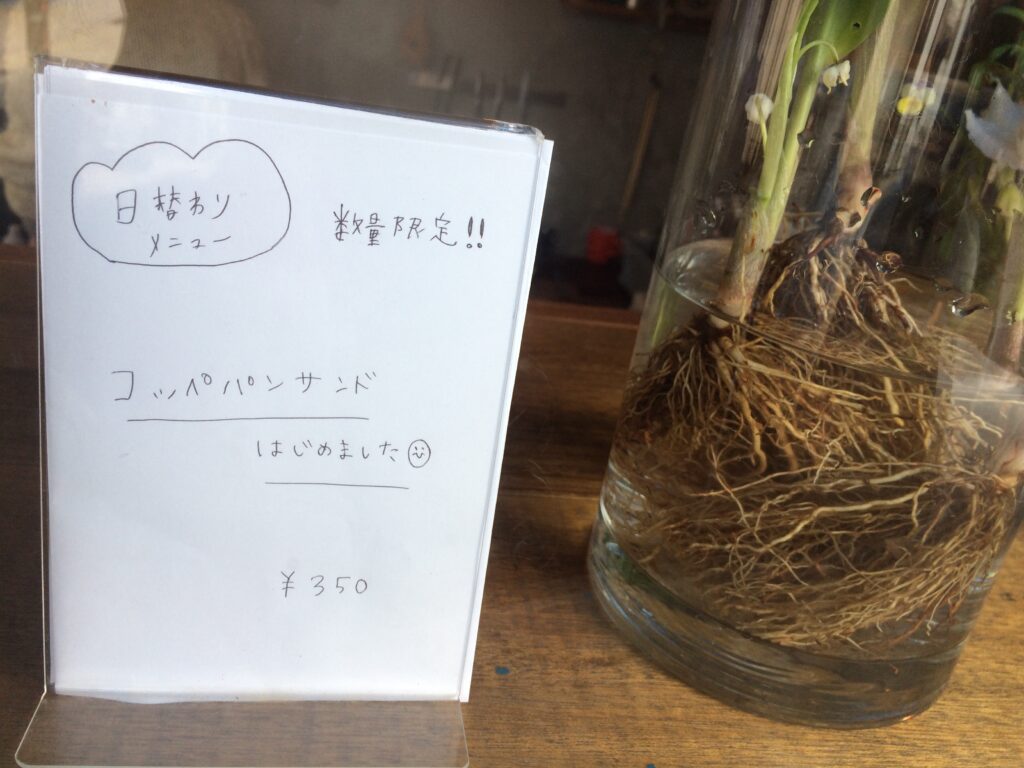 日替わり
メニュー
数量限定!!
コッペパンサンド
はじめました
¥350